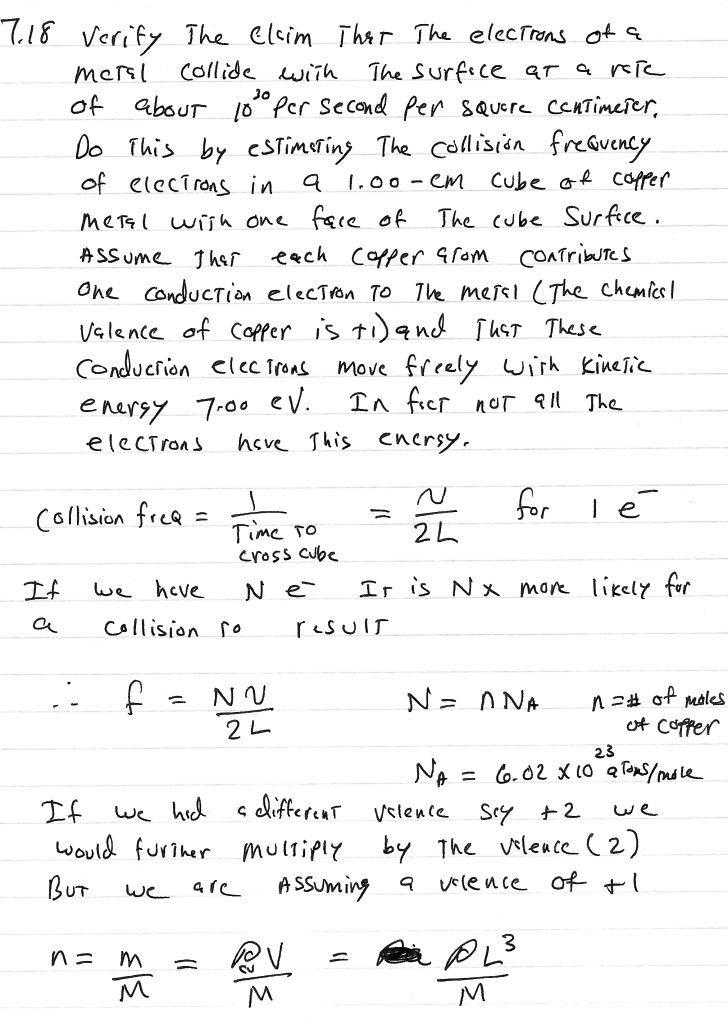 7.18 Verify The Claim That The electrons of a
metal collide with the surface at a rate
of about 10³⁰ per second per square centimeter.
Do This by estimating The collision frequency
of electrons in a 1.00-cm cube of copper
metal with one face of The cube Surface.
Assume That each Copper atom contributes
one conduction electron To The metal (The chemical
valence of copper is +1) and That These
conduction electrons move freely with kinetic
energy 7.00 eV. In fact not all The
electrons have This energy.
Collision freq = 1 / Time to cross cube = v / 2L for 1 e⁻
If we have N e⁻ It is N x more likely for
a collision to result
∴ f = N v / 2L N = n NA n = # of moles of copper
NA = 6.02 x 10²³ atoms/mole
If we had a different valence say +2 we
would further multiply by The valence (2)
But we are Assuming a valence of +1
n = m / M = ρcu V / M = ρ L³ / M